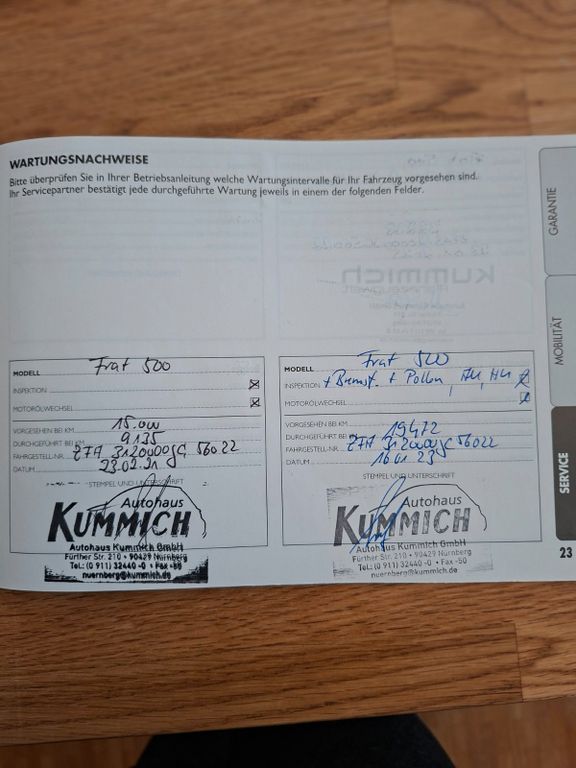 WARTUNGSNACHWEISE
Bitte überprüfen Sie in Ihrer Betriebsanleitung welche Wartungsintervalle für Ihr Fahrzeug vorgesehen sind.
Ihr Servicepartner bestätigt jede durchgeführte Wartung jeweils in einem der folgenden Felder.
MODELL Fiat 500
INSPEKTION
MOTORÖLWECHSEL
VORGESEHEN BEI KM 15.000
DURCHGEFÜHRT BEI KM 9135
FAHRGESTELL-NR. ZFA 3120000JC 56022
DATUM 23.02.21
STEMPEL UND UNTERSCHRIFT
Autohaus
KUMMICH
Autohaus Kummich GmbH
Fürther Str. 210 • 90429 Nürnberg
Tel.: (0 911) 32440 -0 • Fax -50
nuernberg@kummich.de
MODELL Fiat 500
INSPEKTION + Bremsf. + Pollen, AU, HU
MOTORÖLWECHSEL
VORGESEHEN BEI KM
DURCHGEFÜHRT BEI KM 19472
FAHRGESTELL-NR. ZFA 3120000JC 56022
DATUM 16.01.23
STEMPEL UND UNTERSCHRIFT
Autohaus
KUMMICH
Autohaus Kummich GmbH
Fürther Str. 210 • 90429 Nürnberg
Tel.: (0 911) 32440 -0 • Fax -50
nuernberg@kummich.de
GARANTIE
MOBILITÄT
SERVICE
23